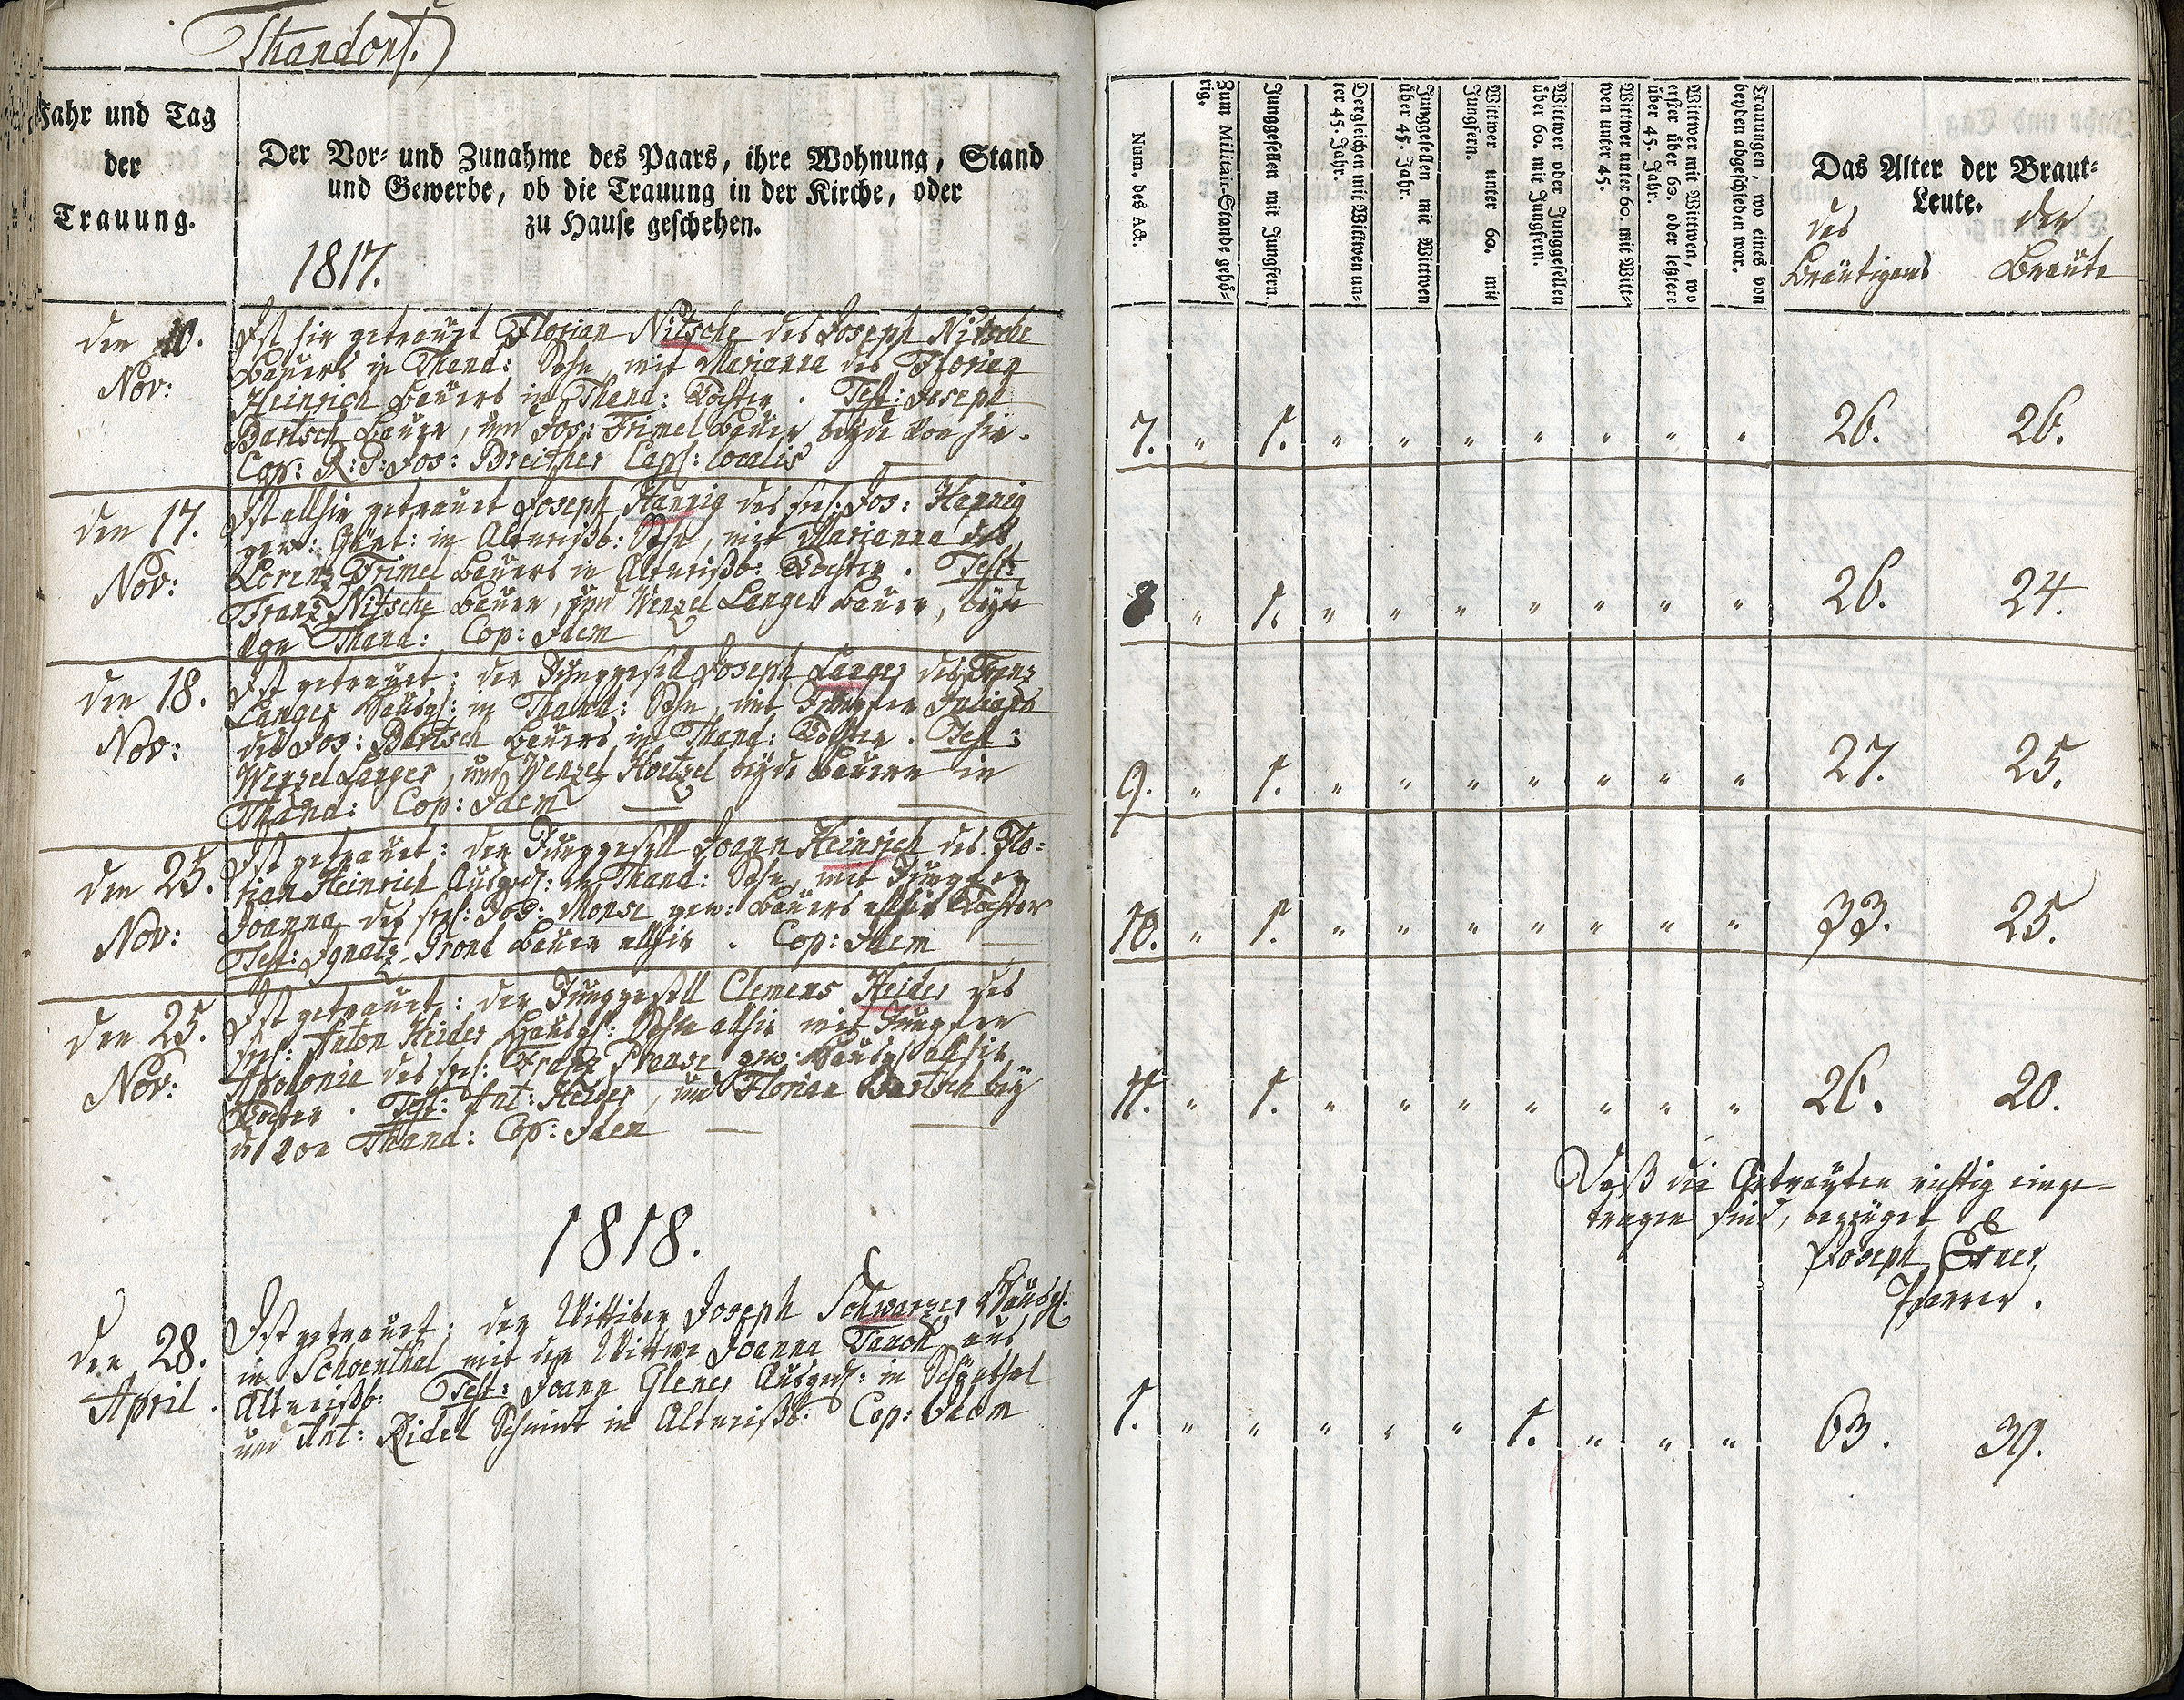 Thandorf.
Jahr und Tag
der
Trauung.
Der Vor- und Zunahme des Paars, ihre Wohnung, Stand
und Gewerbe, ob die Trauung in der Kirche, oder
zu Hause geschehen.
1817.
den 10.
Nov:
Ist hie getraut Florian Nitsche des Joseph Nitsche
Bauers in Thand: Sohn, mit Marianna des Florian
Heinrich Bauers in Thand: Tochter. Test: Joseph
Bartsch Bauer, und Jos: Frimel Bauer beyde von hie.
Cop: R: P: Jos: Breither Cap: localis
den 17.
Nov:
Ist allhie getrauet Joseph Hannig des sel: Jos: Hannig
gew: Gärt: in Altneißb: Sohn, mit Marianna des
Lorenz Frimel Bauers in Altneißb: Tochter. Test:
Franz Nitsche Bauer, und Wenzel Langer Bauer, beyde
von Thand: Cop: Idem
den 18.
Nov:
Ist getrauet: der Junggesell Joseph Langer des Franz
Langer Häusl: in Thand: Sohn, mit Jungfer Juliana
des Jos: Bartsch Bauers in Thand: Tochter. Test:
Wenzel Langer, und Wenzel Hoetzel beyde Bauern in
Thand: Cop: Idem
den 25.
Nov:
Ist getrauet: der Junggesell Joann Heinrich des Flo:
rian Heinrich Ausged: in Thand: Sohn, mit Jungfer
Joanna des sel: Jos: Monse gew: Bauers allhie Tochter
Test: Ignatz Grond Bauer allhie. Cop: Idem
den 25.
Nov:
Ist getrauet: der Junggesell Clemens Heider des
sel: Anton Heider Häusl: Sohn allhie mit Jungfer
Apolonia des sel: Franz gew: Häusl allhie
Tochter. Test: Ant: Heider, und Florian Bartsch bey
de von Thand: Cop: Idem
1818.
den 28.
April.
Ist getrauet: der Wittiber Joseph Schwarzer Häusl:
in Schoenthal mit der Wittwe Joanna aus
Altneißb: Test: Joann Glener Ausged: in Schönthal
und Ant: Ridel Schmied in Altneißb: Cop: Idem
Num. des Act.
Zum Militair-Stande gehö-
rig.
Junggesellen mit Jungfern.
Dergleichen mit Wittwen un-
ter 45. Jahr.
Junggesellen mit Wittwen
über 45. Jahr.
Wittwer unter 60. mit
Jungfern.
Wittwer oder Junggesellen
über 60. mit Jungfern.
Wittwer unter 60. mit Witt-
wen unter 45.
Wittwer mit Wittwen, wo
erster über 60. oder letztere
über 45. Jahr.
Trauungen, wo eines von
beyden abgeschieden war.
Das Alter der Braut-
Leute.
des
Bräutigams
der
Braut
7. " 1. " " " " " " " 26. 26.
8 " 1. " " " " " " " 26. 24.
9. " 1. " " " " " " " 27. 25.
10. " 1. " " " " " " " 33. 25.
11. " 1. " " " " " " " 26. 20.
Daß die Getrauten richtig einge-
tragen sind, bezeuget
Joseph
Pfarrer.
1. " " " " " 1. " " " 63. 39.